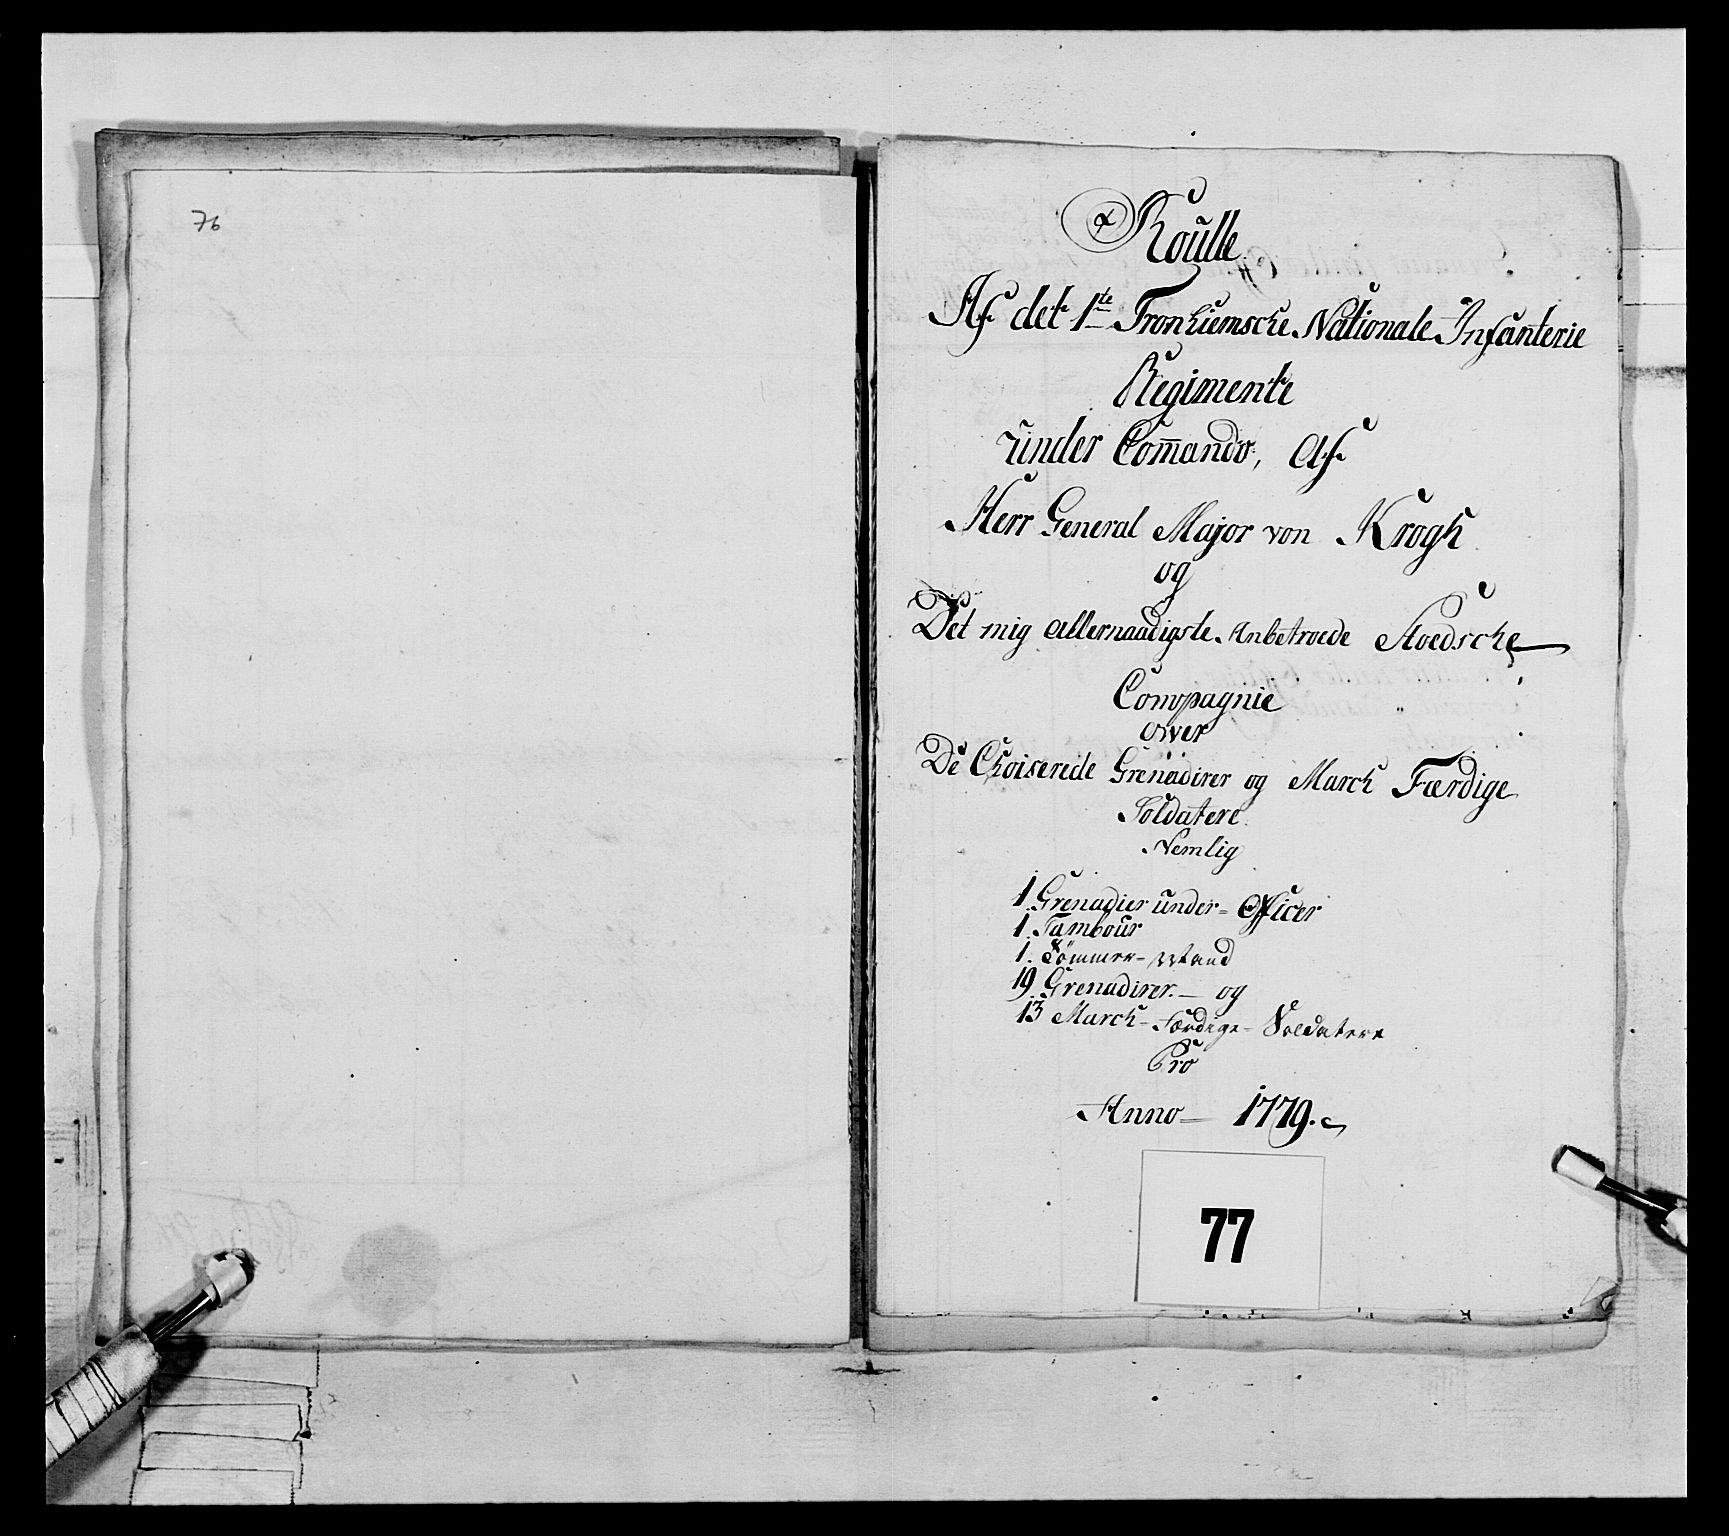 76
Roulle
Af det 1te Tronhiemsche Nationale Infanterie
Regimente
under Com̄ando, Af
Herr General Major von Krogh
og
Det mig allernaadigste Anbetroede Stoedsche
Compagnie
over
De Choiserede Grenadirer og March Færdige
Soldatere
Nemlig
1 Grenadier under-Officer
1. Tambour
1. Tömmer-Mand
19 Grenadirer.- og
13 March-Færdige-Soldatere
Pro
Anno 1779.
77